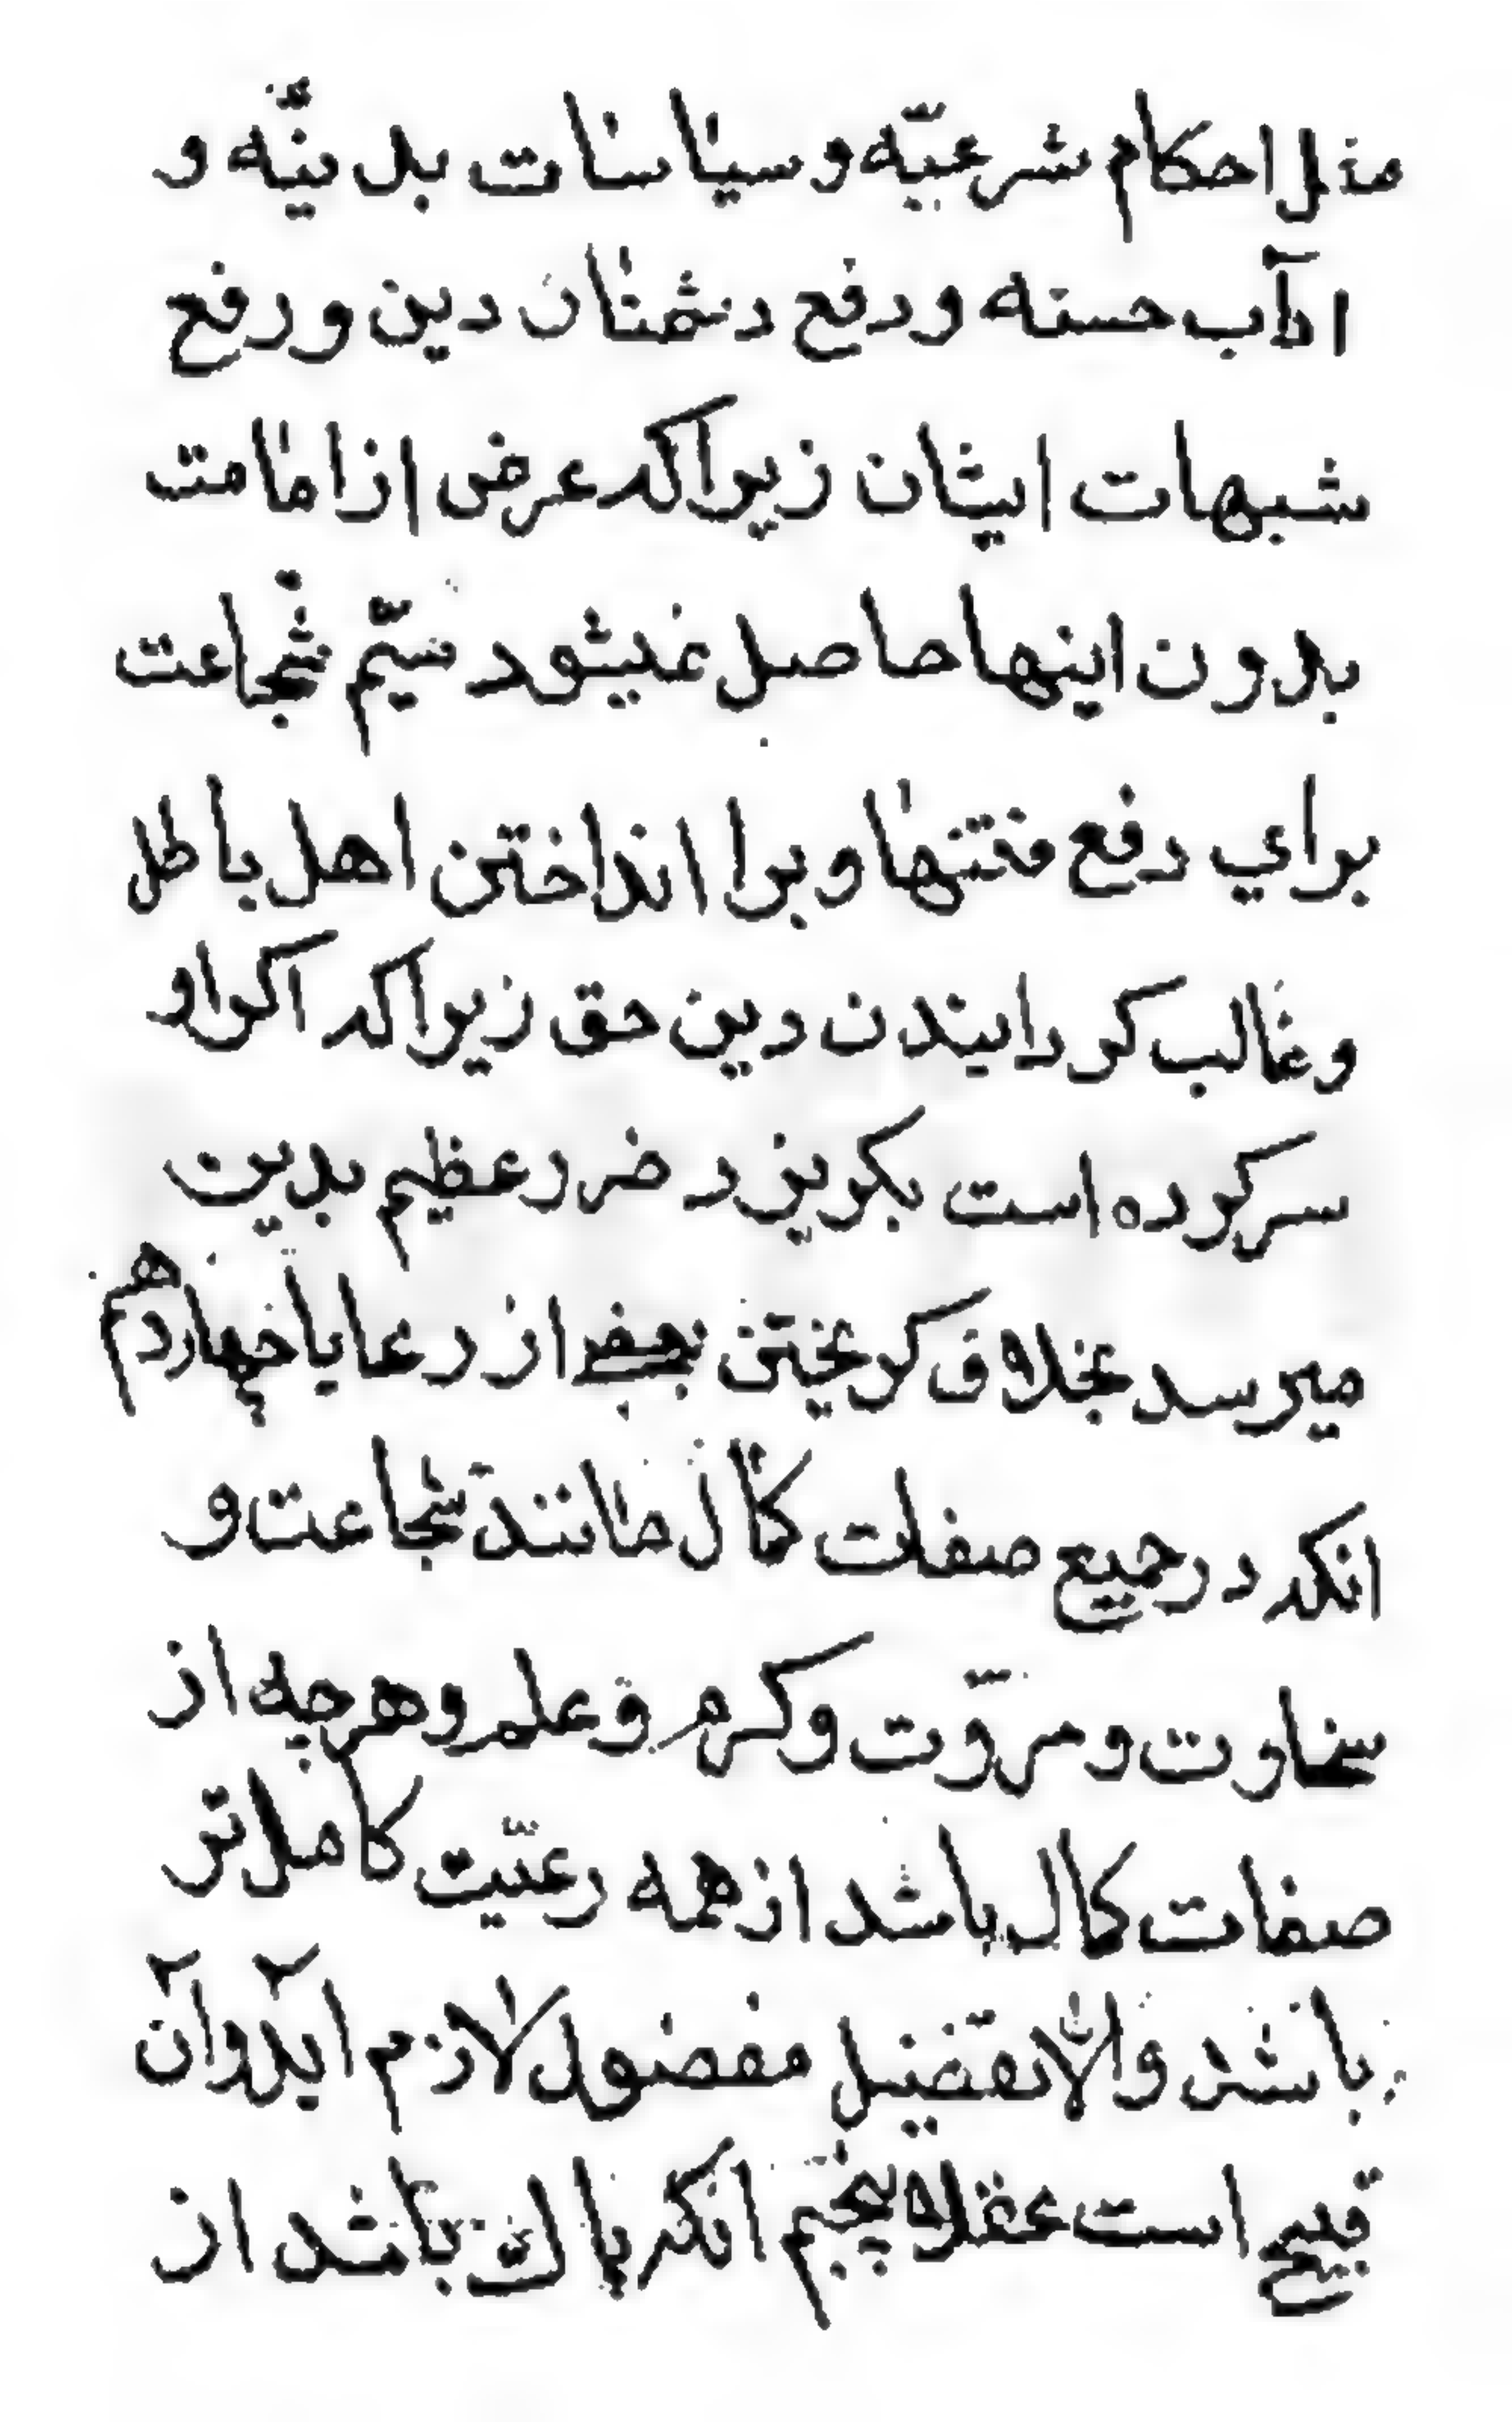 مثل احکام شرعیّه و سیاسات بدینّه و
اداب حسنه و دفع دشمنان دین و رفع
شبهات ایشان زیراکه غرض از امامت
بدون اینها حاصل نمیشود سیّم شجاعت
برای دفع فتنها و برا انداختن اهل باطل
و غالب کردانیدن دین حق زیراکه اکر او
سرکرده است بکریزد ضرر عظیم بدین
میرسد بخلاف کریختن بعضی از رعایا چهاردهم
انکه در جمیع صفات کمال مانند شجاعت و
سخاوت و مروّت و کرم و علم و هرچه از
صفات کمال باشد از همه رعیّت کاملتر
باشد والّا تفضیل مفضول لازم آید وآن
قبیح است عقلا پنجم انکه پاک باشد از